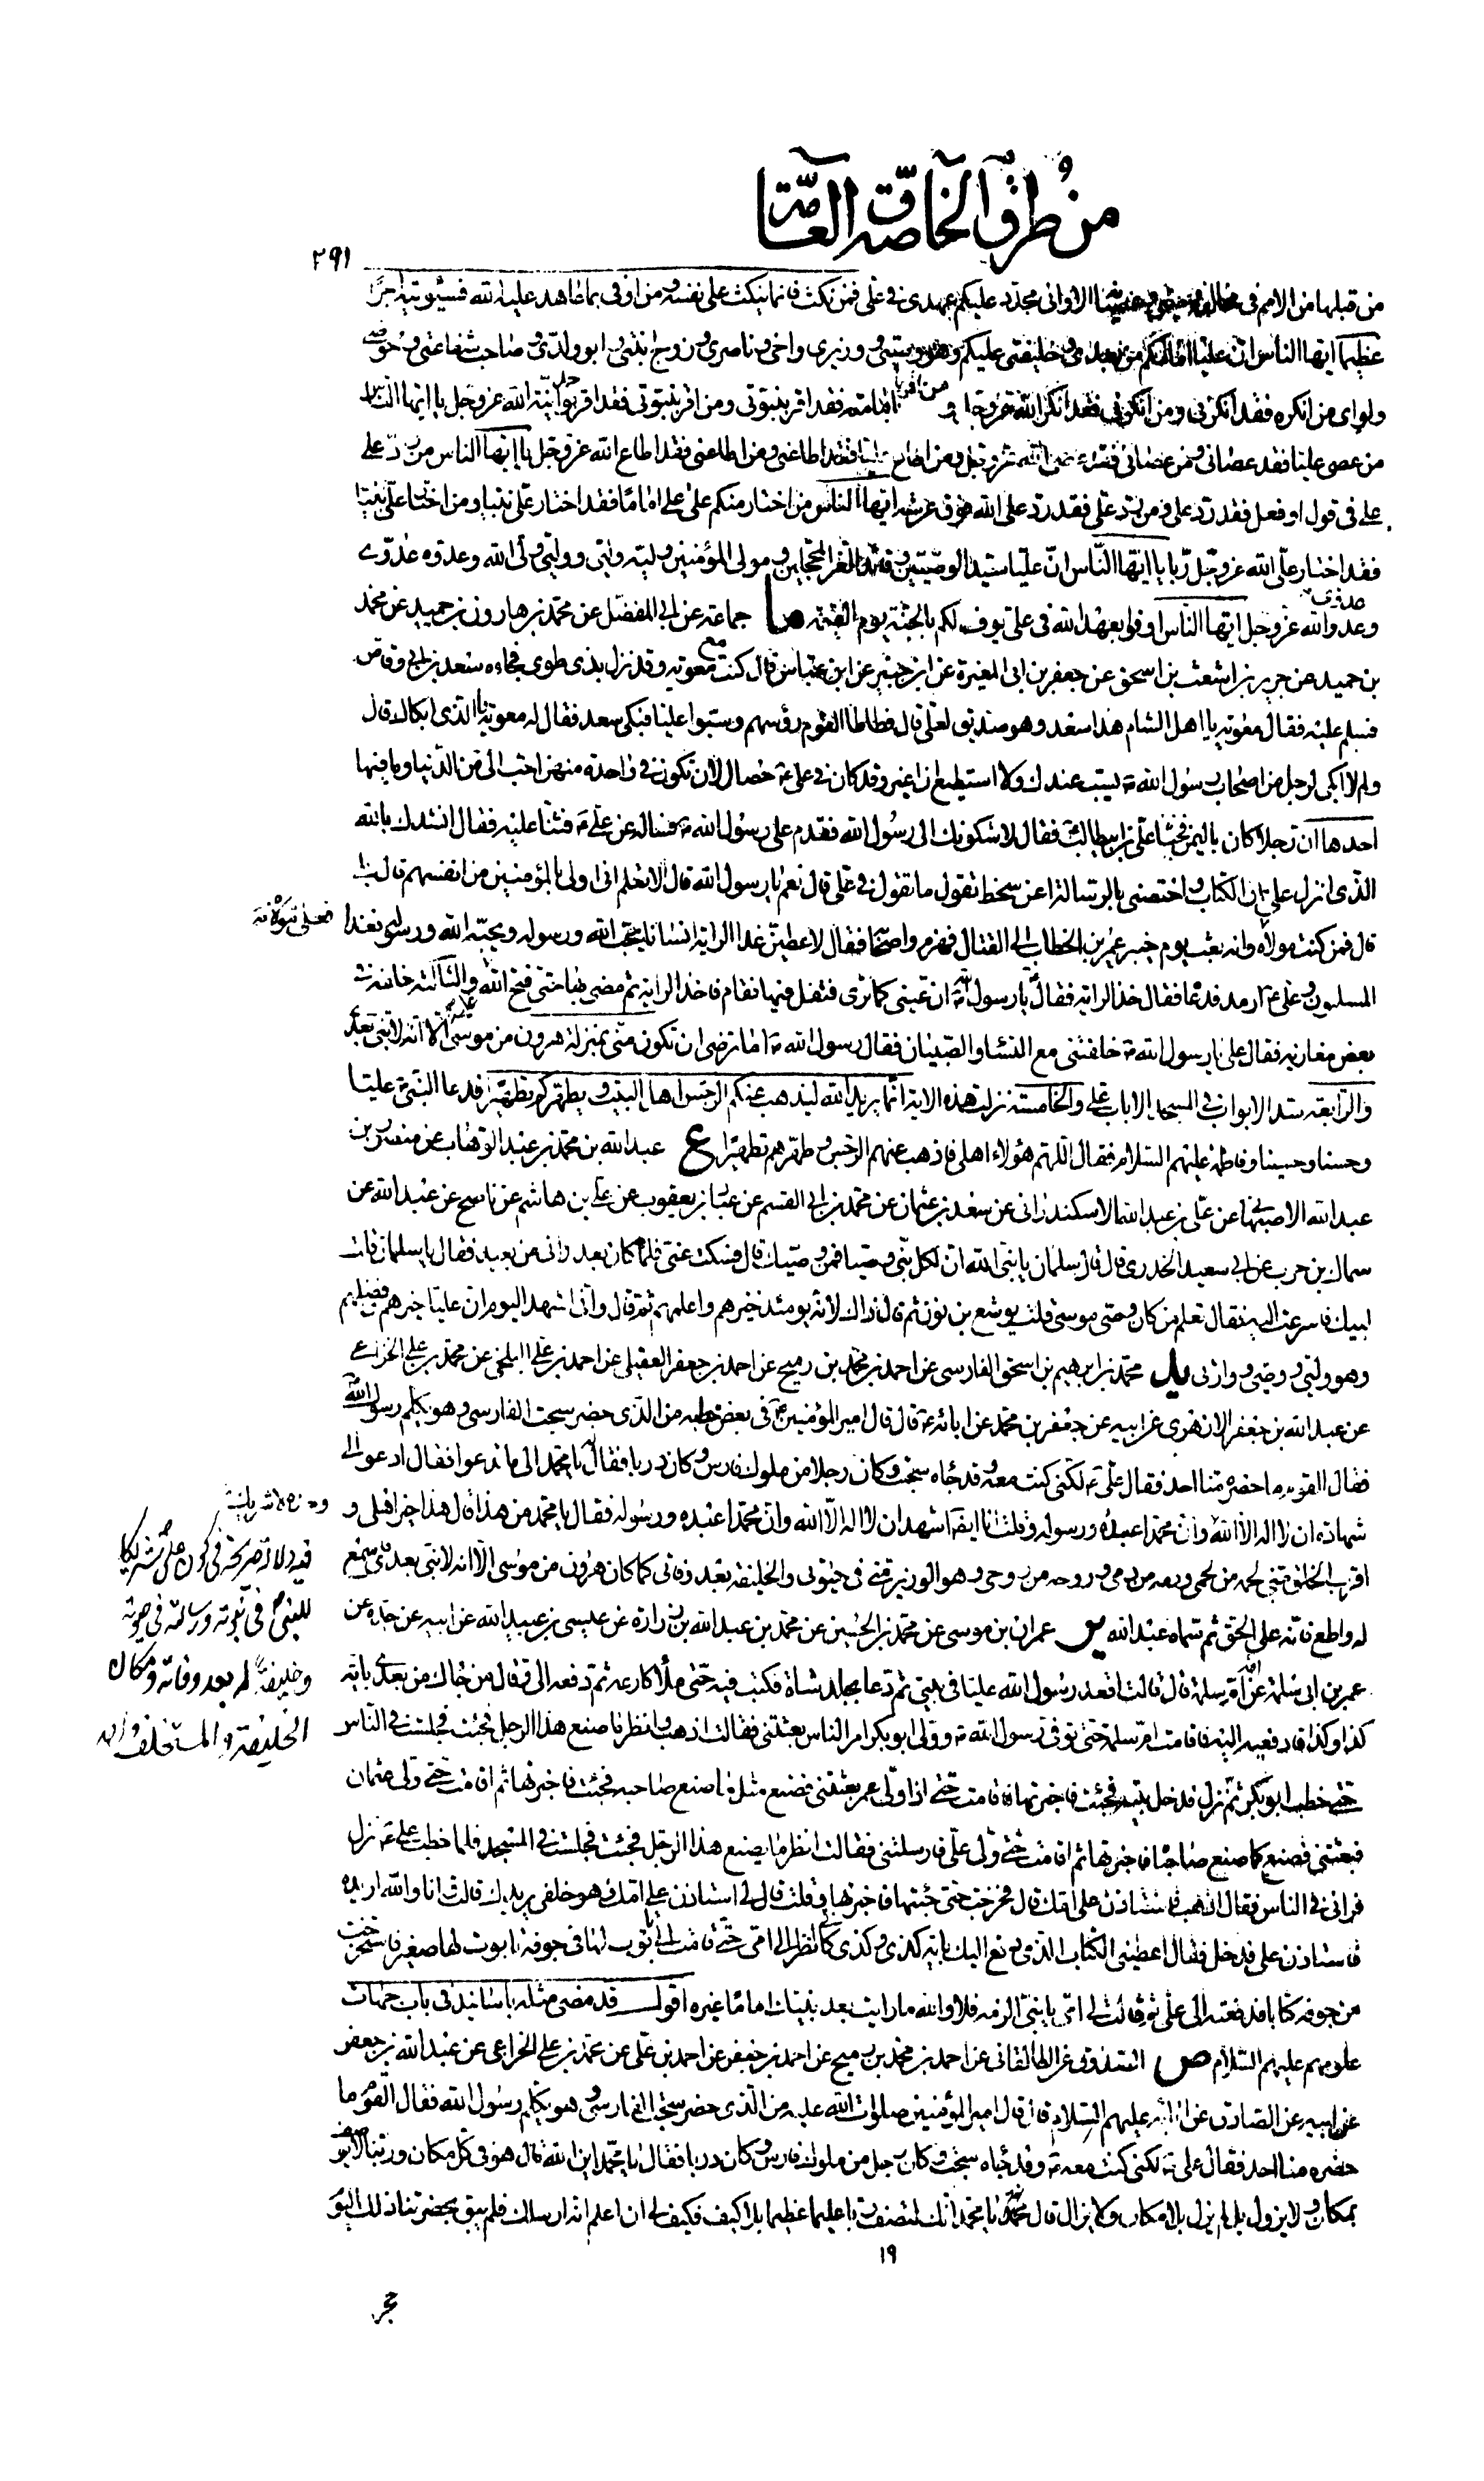 من طرق الخاصة و العامة
٢٩١
من قبلها من الامم فى الا وانى مجدد عليكم عهدى فى على فمن نكث فانما ينكث على نفسه ومن اوفى بما عاهد عليه الله فسيؤتيه اجرا
عظيما ايها الناس ان عليا امامكم من بعدى وخليفتى عليكم وهو وصيى ووزيرى واخى وناصرى وزوج ابنتى وابو ولدى وصاحب شفاعتى وحوضى
ولوائى من انكره فقد انكرنى ومن انكرنى فقد انكر الله عز وجل ومن اقر بامامته فقد اقر بنبوتى ومن اقر بنبوتى فقد اقر بوحدانية الله عز وجل يا ايها الناس
من عصى عليا فقد عصانى ومن عصانى فقد عصى الله عز وجل ومن اطاع عليا فقد اطاعنى ومن اطاعنى فقد اطاع الله عز وجل يا ايها الناس من رد على
على فى قول او فعل فقد رد على ومن رد على فقد رد على الله فوق عرشه ايها الناس من اختار منكم على على اماما فقد اختار على نبيا ومن اختار على نبيا
فقد اختار على الله عز وجل ربا يا ايها الناس ان عليا سيد الوصيين وقائد الغر المحجلين ومولى المؤمنين وليه وليى ووليى ولى الله وعدوه عدوى
وعدوى عدو الله عز وجل ايها الناس اوفوا بعهد الله فى على يوف لكم بالجنة يوم القيمة ما جماعة عن ابى المفضل عن محمد بن هارون بن حميد عن محمد
بن حميد عن جرير بن اشعث بن اسحق عن جعفر بن ابى المغيرة عن ابن جبير عن ابن عباس قال كنت مع معوية وقد نزل بذى طوى فجاءه سعد بن ابى وقاص
فسلم عليه فقال معوية يا اهل الشام هذا سعد وهو صديق لعلى قال فطاطا القوم رؤسهم وسبوا عليا فبكى سعد فقال له معوية ما الذى ابكاك قال
ولم لا ابكى لرجل من اصحاب رسول الله ص يسب عندك ولا استطيع ان اغير وقد كان فى على ع خصال لان تكون فى واحدة منهن احب الى من الدنيا وما فيها
احدها ان رجلا كان باليمن فجفاه على بن ابيطالب فقال لاشكونك الى رسول الله فقدم على رسول الله ص فساله عن على ع فثنا عليه فقال انشدك بالله
الذى انزل على الكتاب واختصنى بالرسالة اعن سخط تقول ما تقول فى على قال نعم يا رسول الله قال الا تعلم انى اولى بالمؤمنين من انفسهم قال بلى
قال فمن كنت مولاه فعلى مولاه وانه بعث يوم خيبر عمر بن الخطاب الى القتال فهزم واصحابه فقال لاعطين غدا الراية انسانا يحب الله ورسوله ويحبه الله ورسوله فغدا
المسلمون وعلى ع ارمد فدعاه فقال خذ الراية فقال يا رسول الله ان عينى كما ترى فتفل فيها فقام فاخذ الراية ثم مضى بها حتى فتح الله والثالثة خلفه فى
بعض مغازيه فقال على يا رسول الله ص خلفتنى مع النساء والصبيان فقال رسول الله ص اما ترضى ان تكون منى بمنزلة هرون من موسى الا انه لا نبى بعدى
والرابعة سد الابواب فى المسجد الا باب على والخامسة نزلت هذه الاية انما يريد الله ليذهب عنكم الرجس اهل البيت ويطهركم تطهيرا فدعا النبى ص عليا
وحسنا وحسينا وفاطمة عليهم السلام فقال اللهم هؤلاء اهلى فاذهب عنهم الرجس وطهرهم تطهيرا ع عبد الله بن محمد بن عبد الوهاب عن منصور بن
عبد الله الاصبهانى عن على بن عبد الله الاسكندرانى عن سعد بن عثمان عن محمد بن ابى القسم عن عباد بن يعقوب عن على بن هاشم عن ناصح عن عبد الله عن
سماك بن حرب عن ابى سعيد الخدرى قال قال سلمان يا نبى الله ان لكل نبى وصيا فمن وصيك قال فسكت عنى فلما كان بعد رانى من بعيد فقال يا سلمان قلت
لبيك فاسرعت اليه فقال تعلم من كان وصى موسى قلت يوشع بن نون ثم قال ذاك لانه يومئذ خيرهم واعلمهم ثم قال وانى اشهد اليوم ان عليا خيرهم وافضلهم
وهو وليى ووصيى ووارثى يد محمد بن ابرهيم بن اسحق الفارسى عن احمد بن محمد بن رميح عن احمد بن جعفر العقيلى عن احمد بن على البلخى عن محمد بن على الخزاعى
عن عبد الله بن جعفر الازهرى عن ابيه عن جعفر بن محمد عن ابائه ع قال قال امير المؤمنين ع فى بعض خطبه من الذى حضر سبخت الفارسى وهو يكلم رسول الله
فقال القوم ما حضره منا احد فقال على ع لكنى كنت معه وقد جاءه سبخت وكان رجلا من ملوك فارس وكان ذربا فقال له يا محمد الى ما تدعوا فقال ادعو الى
شهادة ان لا اله الا الله وان محمدا عبده ورسوله وقلت انا ايضا اشهد ان لا اله الا الله وان محمدا عبده ورسوله فقال يا محمد من هذا قال هذا خير اهلى و
اقرب الخلق منى لحمه من لحمى ودمه من دمى وروحه من روحى وهو الوزير منى فى حيوتى والخليفة بعد وفاتى كما كان هرون من موسى الا انه لا نبى بعدى فاسمع
له واطع فانه على الحق ثم سماه عبد الله ير عمران بن موسى عن محمد بن الحسين عن محمد بن عبد الله بن زرارة عن عيسى بن عبيد الله عن ابيه عن جده عن
عمر بن ابى سلمة عن امه ام سلمة قال قالت اقعد رسول الله عليا فى بيتى ثم دعا بجلد شاة فكتب فيه حتى ملأ اكارعه ثم دفعه الى وقال من جاءك من بعدى باية
كذا وكذا فادفعيه اليه فاقامت ام سلمة حتى توفى رسول الله ص وولى ابو بكر امر الناس بعثتنى فقالت اذهب وانظر ما صنع هذا الرجل فجئت فجلست فى الناس
حتى خطب ابو بكر ثم نزل فدخل بيته فجئت فاخبرتها فاقامت حتى اذا ولى عمر بعثتنى فصنع مثل ما صنع صاحبه فجئت فاخبرتها ثم اقامت حتى ولى عثمان
فبعثتنى فصنع كما صنع صاحباه فاخبرتها ثم اقامت حتى ولى على فارسلتنى فقالت انظر ما يصنع هذا الرجل فجئت فجلست فى المسجد فلما خطب على ع نزل
فرانى فى الناس فقال اذهب فاستاذن على امك قال فخرجت حتى جئتها فاخبرتها وقلت قال لى استاذن على امك وهو خلفى يريدك قالت انا والله اريده
فاستاذن على فدخل فقال اعطينى الكتاب الذى دفع اليك باية كذى وكذى كانى انظر الى امى حتى قامت الى تابوت لها فى جوفه تابوت لها صغير فاستخرجت
من جوفه كتابا فدفعته الى على ثم قالت لى امى يا بنى الزمه فلا والله ما رايت بعد نبيك اماما غيره اقول قد مضى مثله باسانيد فى باب جهات
علومهم عليهم السلام ص الصدوق عن الطالقانى عن احمد بن محمد بن رميح عن احمد بن جعفر عن احمد بن على عن محمد بن على الخزاعى عن عبد الله بن جعفر
عن ابيه عن الصادق عن ابائه عليهم السلام قال قال امير المؤمنين صلوات الله عليه من الذى حضر سبخت الفارسى وهو يكلم رسول الله فقال القوم ما
حضره منا احد فقال على ع لكنى كنت معه ص وقد جاءه سبخت وكان رجل من ملوك فارس وكان ذربا فقال يا محمد اين الله قال هو فى كل مكان وربنا لا يوصف
بمكان ولا يزول بل لم يزل بلا مكان ولا يزال قال يا محمد انك لتصف ربا عليما عظيما بلا كيف فكيف لى ان اعلم انه ارسلك فلم يبق بحضرتنا ذلك اليوم
١٩
حجر
فيه دلالة صريحة فى كون على شريكا
للنبى ص فى نبوته ورسالته فى حيوته
وخليفة له بعد وفاته ومكان
الخليفة والمستخلف واحد